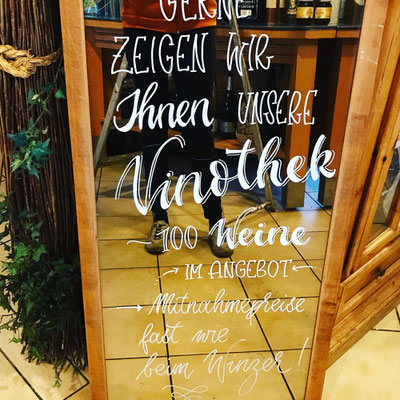 GERNE
ZEIGEN WIR
Ihnen UNSERE
Vinothek
~ 100 Weine
→ IM ANGEBOT ←
→ Mitnahmepreise
fast wie
beim Winzer!